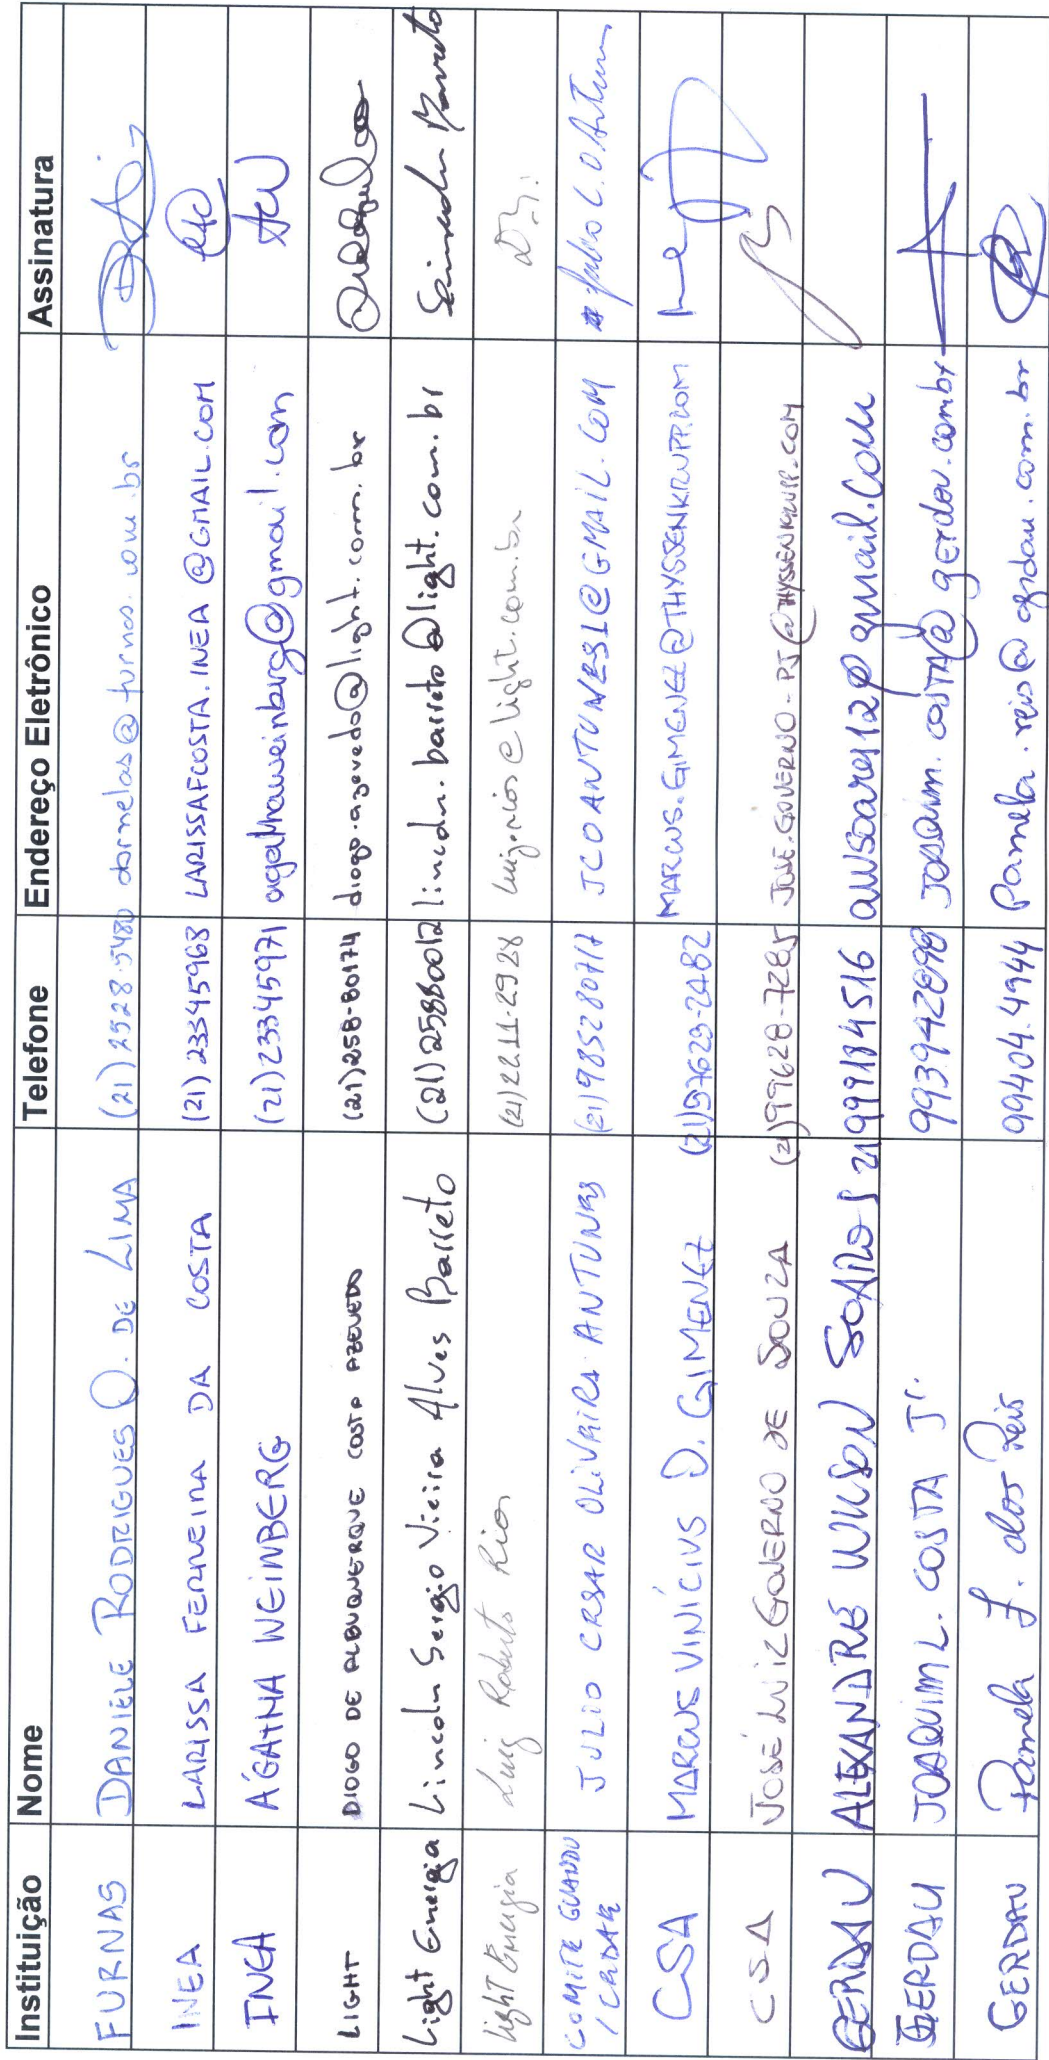 Instituição Nome Telefone Endereço Eletrônico Assinatura
FURNAS DANIELE RODRIGUES O. DE LIMA (21) 2528-5480 dornelas@furnas.com.br
INEA LARISSA FERREIRA DA COSTA (21) 23345968 LARISSAFCOSTA.INEA@GMAIL.COM
INEA ÁGATHA WEINBERG (21) 23345971 agathaweinberg@gmail.com
LIGHT DIOGO DE ALBUQUERQUE COSTA AZEVEDO (21) 258-80174 diogo.azevedo@light.com.br
Light Energia Lincoln Sergio Vieira Alves Barreto (21) 25880012 lincoln.barreto@light.com.br
Light Energia Luiz Roberto Rios (21) 2211-2928 luiz.rios@light.com.br
COMITE GUANDU JULIO CESAR OLIVEIRA ANTUNES (21) 985280717 JCOANTUNES1@GMAIL.COM
/ CEDAE
CSA MARCUS VINÍCIUS D. GIMENEZ (21) 97629-2482 MARCUS.GIMENEZ@THYSSENKRUPP.COM
CSA JOSÉ LUIZ GOVERNO DE SOUZA (21) 99628-7285 JOSE.GOVERNO-RJ@THYSSENKRUPP.COM
GERDAU ALEXANDRE WILSON SOARES 21 999184516 awsoares12@gmail.com
GERDAU JOAQUIM L. COSTA Jr. 993942898 joaquim.costa@gerdau.com.br
GERDAU Pamela F. dos Reis 99404.4944 Pamela.reis@gerdau.com.br